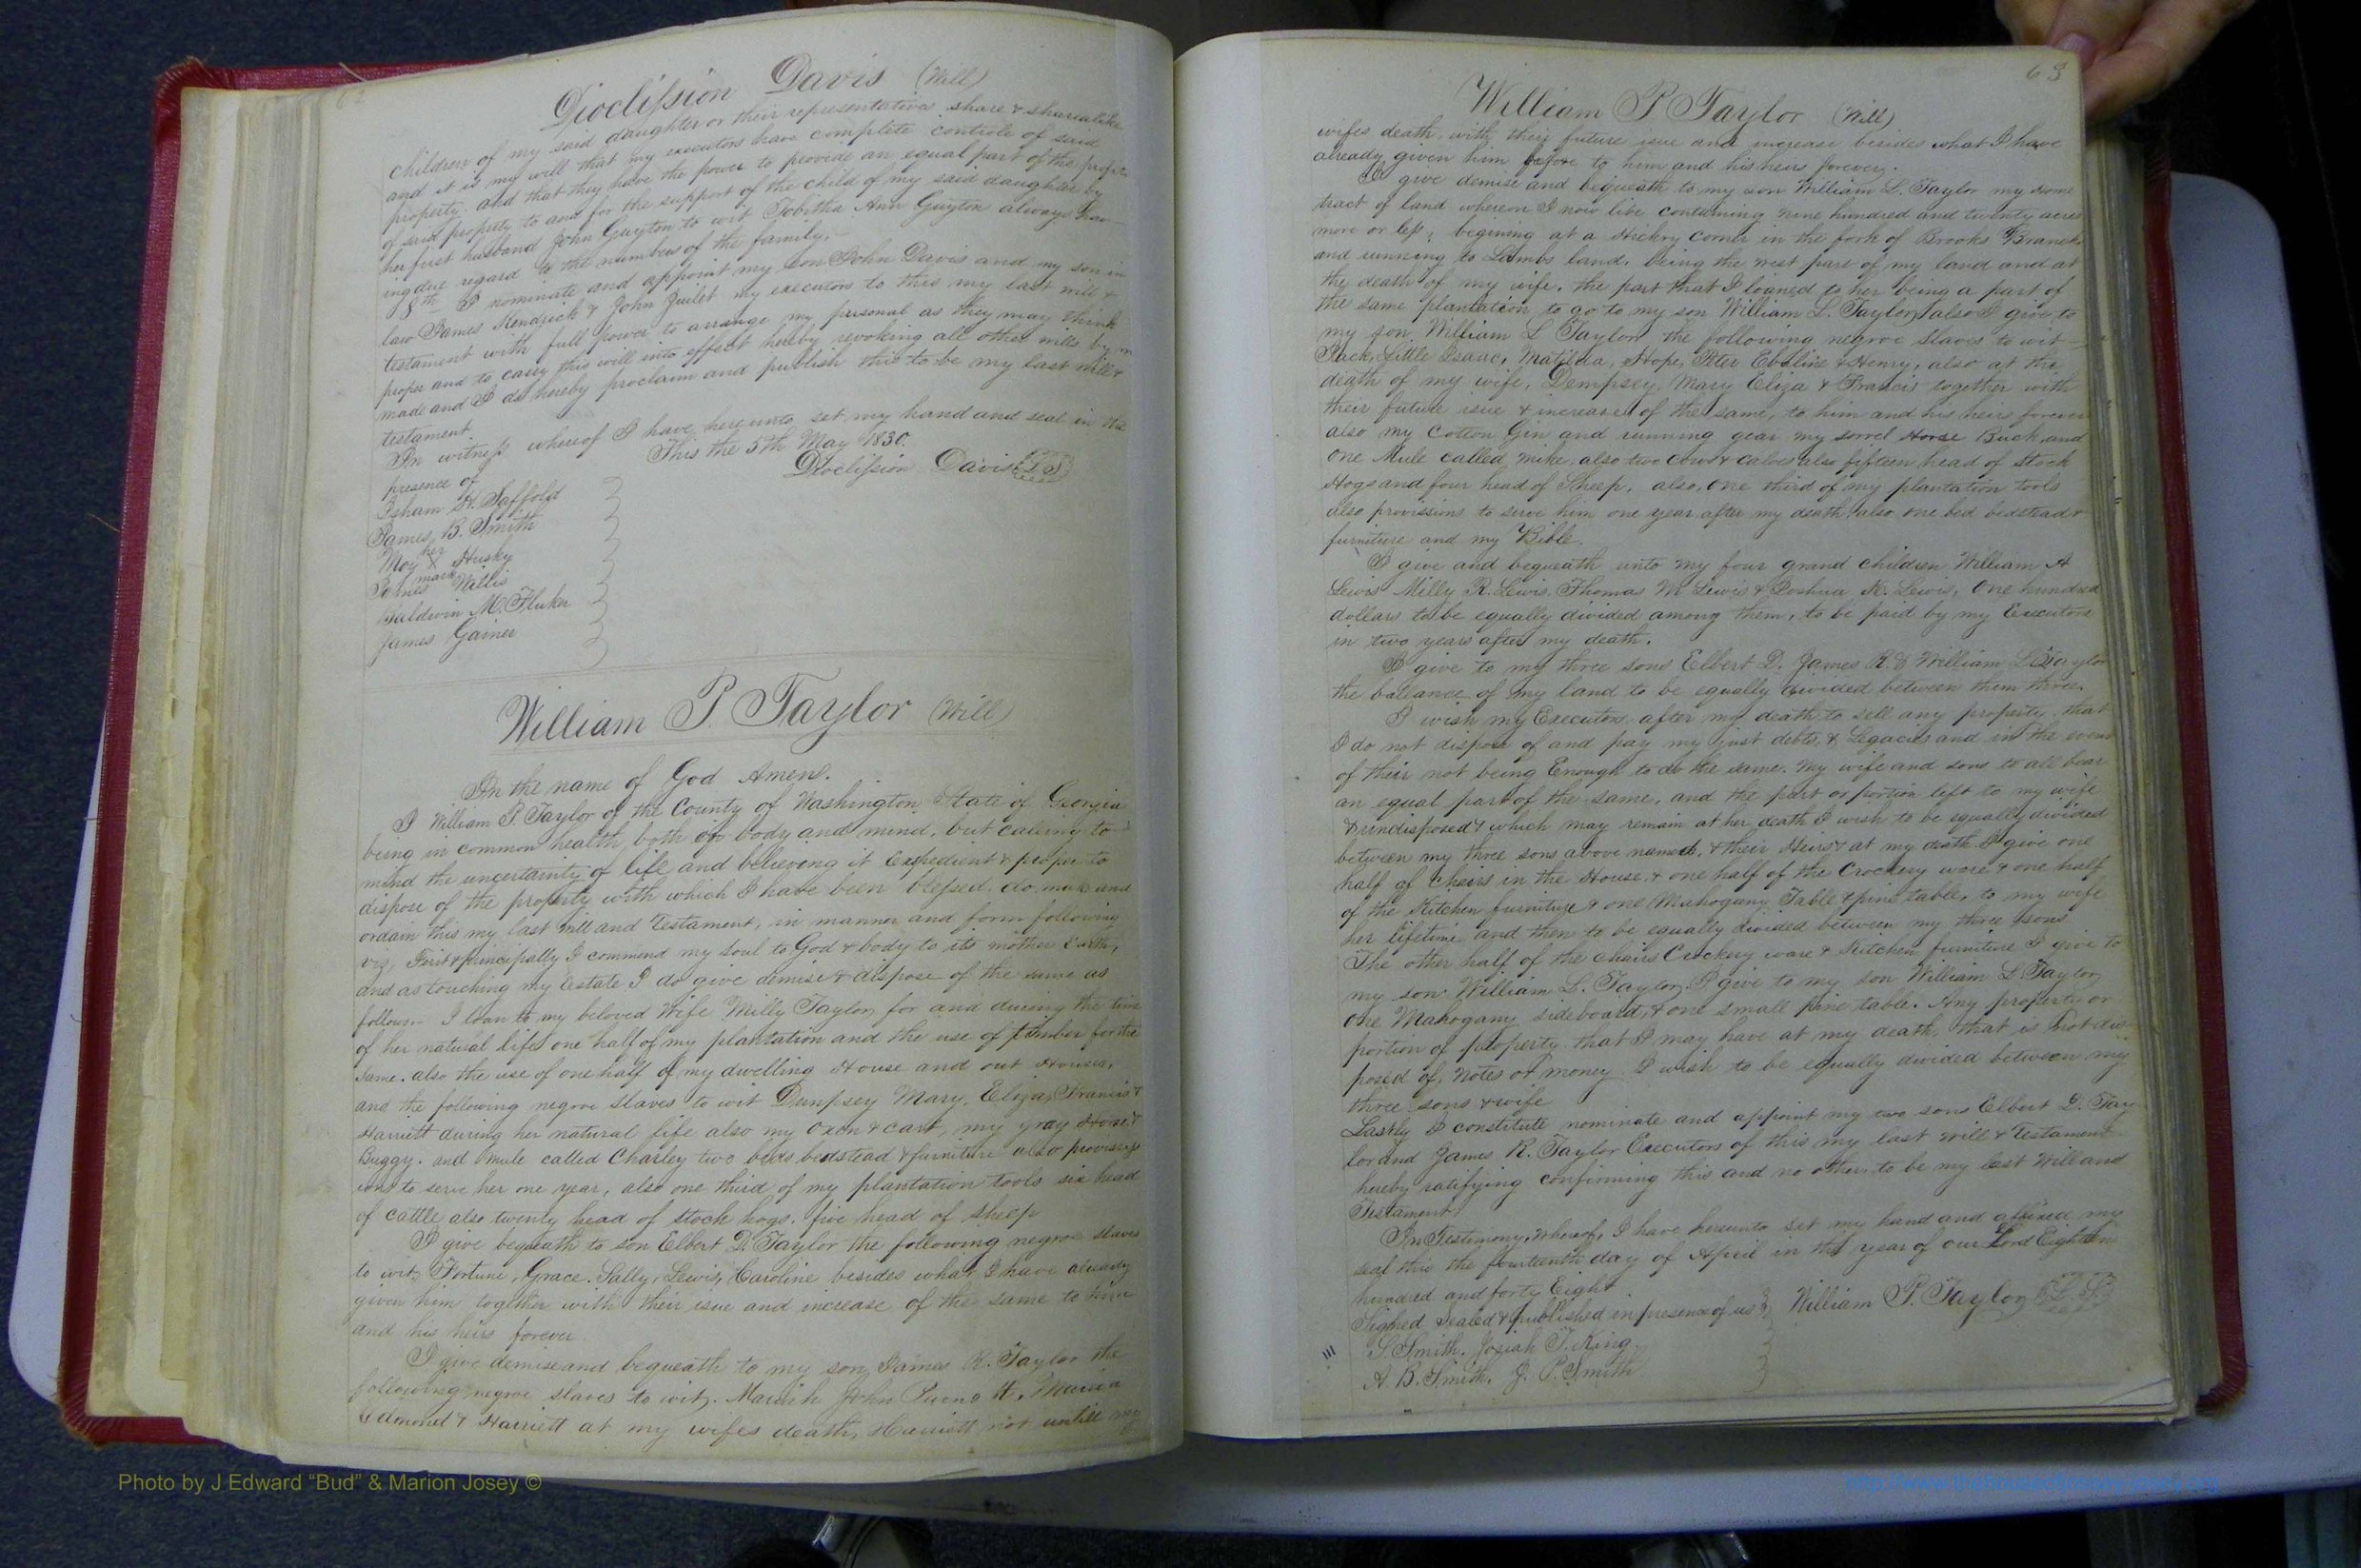 62
Dioclission Davis (Will)
children of my said daughter or their representatives share & share alike
and it is my will that my executors have complete controle of said
property. and that they have the power to provide an equal part of the
of said property to and for the support of the child of my said daughter by
her first husband John Guyton to wit Tobitha Ann Guyton always hav
ing due regard to the number of the family.
8th I nominate and appoint my son John Davis and my son in
law James Kendrick & John Juilet my executors to this my last will &
testament with full power to arrange my personal as they may think
proper and to carry this will into effect hereby revoking all other wills by m
made and I do hereby proclaim and publish this to be my last will &
testament.
In witness whereof I have hereunto set my hand and seal in the
presence of This the 5th May 1830.
Dioclission Davis LS
Isham H. Saffold
James B. Smith
May her X mark Husky
James Willis
Baldwin M. Fluker
James Gainer
William P. Taylor (Will)
In the name of God Amen.
I William P. Taylor of the County of Washington State of Georgia
being in common health, both of body and mind, but calling to
mind the uncertainty of life, and believing it Expedient & proper to
dispose of the property with which I have been blessed. do, make and
ordain this my last will and Testament, in manner and form following
viz, First & principally I commend my soul to God & body to its mother Earth,
and as touching my Estate I do give demise & dispose of the same as
follows. I loan to my beloved Wife Milly Taylor, for and during the time
of her natural life one half of my plantation and the use of timber for the
same. also the use of one half of my dwelling House and out Houses,
and the following negroe slaves to wit Dempsey Mary, Eliza, Francis &
Harriett during her natural life also my Oxen & cart, my gray Horse &
Buggy. and mule called Charley two beds bedstead & furniture also provis
ions to serve her one year, also one third of my plantation tools six head
of cattle also twenty head of stock hogs. five head of sheep
I give bequeath to son Elbert D. Taylor the following negroe slaves
to wit, Fortune, Grace. Sally, Lewis, Caroline besides what I have already
given him together with their isue and increase of the same to him
and his heirs forever.
I give demise and bequeath to my son James R. Taylor the
following negroe slaves to wit, John
Edmond & Harriett at my wifes death, Harriett not untill my
63
William P. Taylor (Will)
wifes death. with their future isue and increase besides what I have
already given him before to him and his heirs forever.
I give demise and bequeath to my son William L. Taylor my Home
tract of land whereon I now live containing nine hundred and twenty acres
more or less; begining at a Hickory Corner in the fork of Brooks Branch
and running to Lambs land, being the west part of my land and at
the death of my wife, the part that I loaned to her being a part of
the same plantation to go to my son William L. Taylor, also I give to
my son William L Taylor the following negroe slaves to wit
Jack, Little Isaac, Matilda, Hope, Peter Eveline & Henry, also at the
death of my wife, Dempsey, Mary Eliza & Francis together with
their future isue & increase of the same, to him and his heirs forever
also my Cotton Gin and running gear my sorrel Horse Buck, and
one Mule called Mike, also two cows & calves also fifteen head of Stock
Hogs and four head of Sheep, also, one third of my plantation tools
also provissions to serve him one year after my death, also one bed bedstead &
furniture and my Bible.
I give and bequeath unto my four grand children William A
Lewis Milly R. Lewis. Thomas W Lewis & Joshua N. Lewis, One hundred
dollars to be equally divided among them, to be paid by my Executors
in two years after my death.
I give to my three sons Elbert D. James R. & William L Taylor
the ballance of my land to be equally divided between them three.
I wish my Executors after my death to sell any property that
I do not dispose of and pay my just debts, & Legacies and in the event
of their not being Enough to do the same. My wife and sons to all bear
an equal part of the same, and the part or portion left to my wife
& undisposed & which may remain at her death I wish to be equally divided
between my three sons above named, & their Heirs & at my death I give one
half of chairs in the House, & one half of the Crockery ware & one half
of the Kitchen furniture & one Mahogany Table & pine table, to my wife
her lifetime and then to be equally divided between my three sons
The other half of the chairs Crockery ware & Kitchen furniture I give to
my son William L. Taylor. I give to my son William L Taylor
one Mahogany sideboard, & one small pine table. Any property or
portion of property that I may have at my death, that is not dis
posed of, notes or money I wish to be equally divided between my
three sons & wife
Lastly I constitute nominate and appoint my two sons Elbert D. Tay
lor and James R. Taylor Executors of this my last will & Testament
hereby ratifying confirming this and no other to be my last Will and
Testament.
In Testimony, Whereof, I have hereunto set my hand and affixed my
seal this the fourteenth day of April in the year of our Lord Eighteen
hundred and forty Eight
Signed Sealed & published in presence of us William P. Taylor L.S.
S. Smith. Josiah T. King.
A. B. Smith. J. P. Smith
Photo by J Edward “Bud” & Marion Josey ©